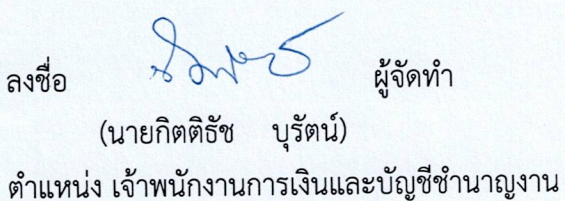 ลงชื่อ ผู้จัดทำ
(นายกิตติธัช บุรัตน์)
ตำแหน่ง เจ้าพนักงานการเงินและบัญชีชำนาญงาน